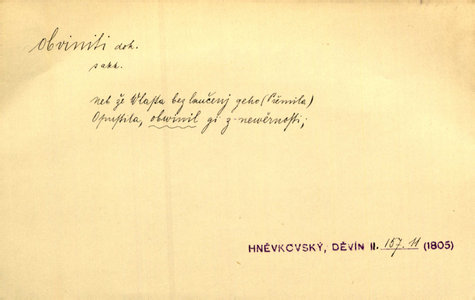 obviniti dok.
sakk.
neb že Vlasta bez laučenj geho (Přemila)
Opustila, obwinil gi z newěrnosti;
HNĚVKOVSKÝ, DĚVÍN II. 157. 11 (1805)